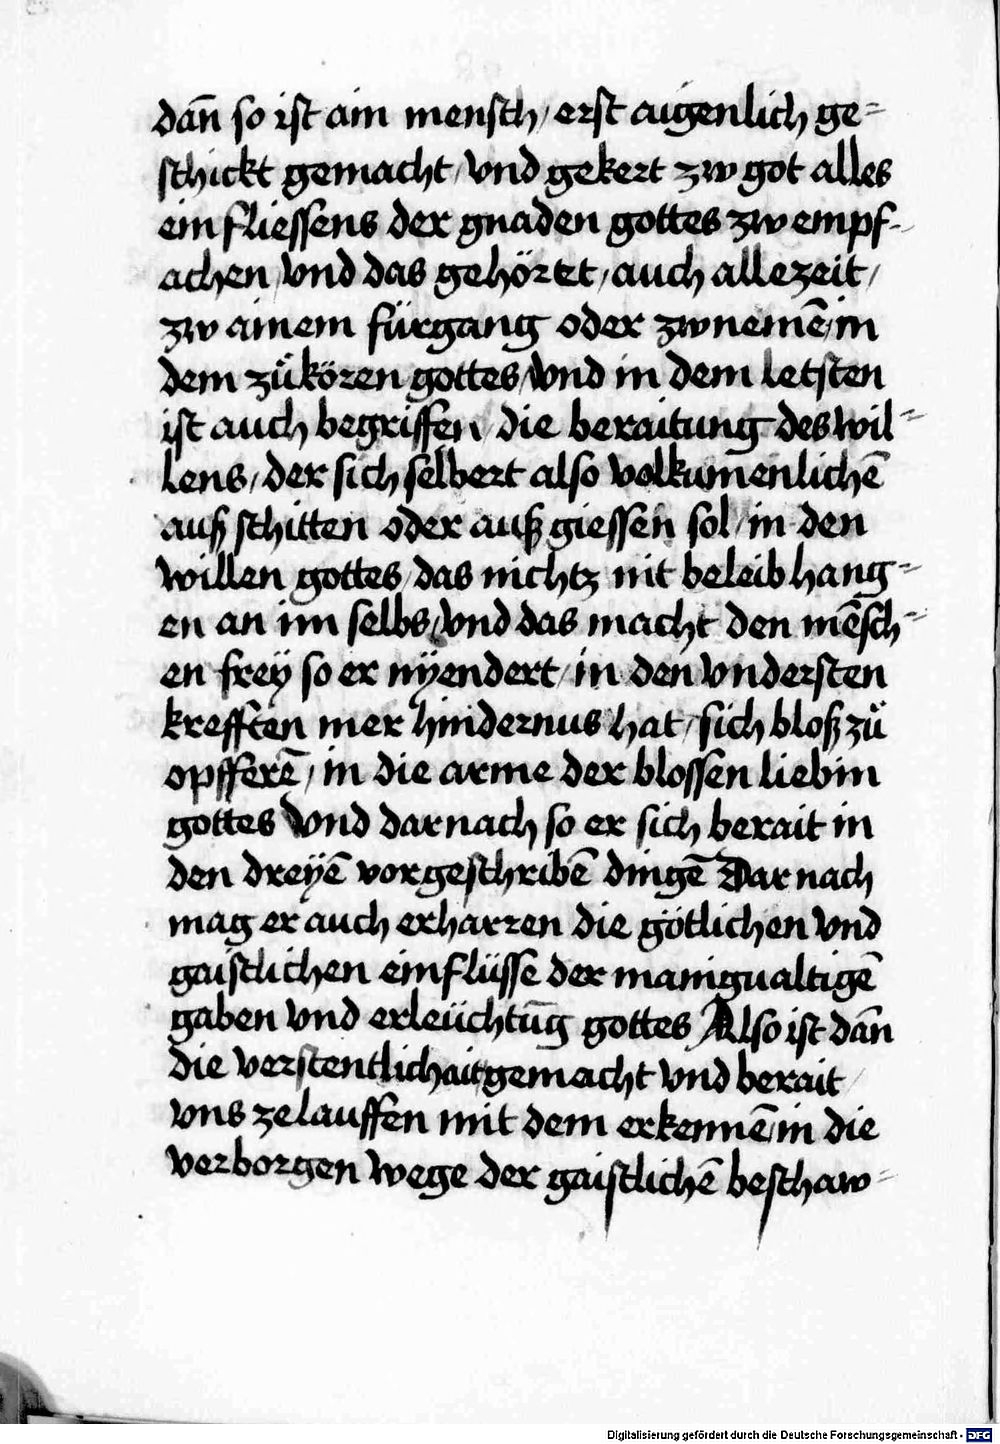 dañ so ist ain mensch / erst aigenlich ge=
schickt gemacht / vnd gekert zw got alles
einfliessens der gnaden gottes zw empf=
achen / vnd das gehöret / auch allezeit /
zw ainem fürgang oder zwnemē / in
dem zůkören gottes / vnd in dem letsten
ist auch begriffen / die beraitung des wil=
lens / der sich selbert also volkumenlichē
auß schitten oder auß giessen sol / in den
willen gottes / das nichtz nit beleib hang=
en an im selbs / vnd das macht den mēsch=
en freÿ so er nÿendert / in den vndersten
krefften mer hindernus hat / sich bloß zů
opfferē / in die arme der blossen liebin
gottes Vnd darnach so er sich berait in
den dreÿē vorgeschribē dingē Dar nach
mag er auch erharren die götlichen vnd
gaistlichen einflüsse der manigualtigē
gaben vnd erleüchtūg gottes Also ist dañ
die verstentlichait gemacht vnd berait /
vns ze lauffen mit dem erkennē / in die
verborgen wege der gaistlichē beschaw=
Digitalisierung gefördert durch die Deutsche Forschungsgemeinschaft - DFG